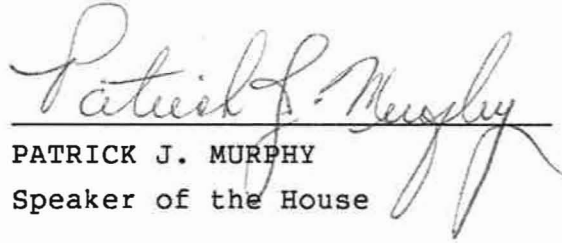 Patrick J. Murphy
PATRICK J. MURPHY
Speaker of the House